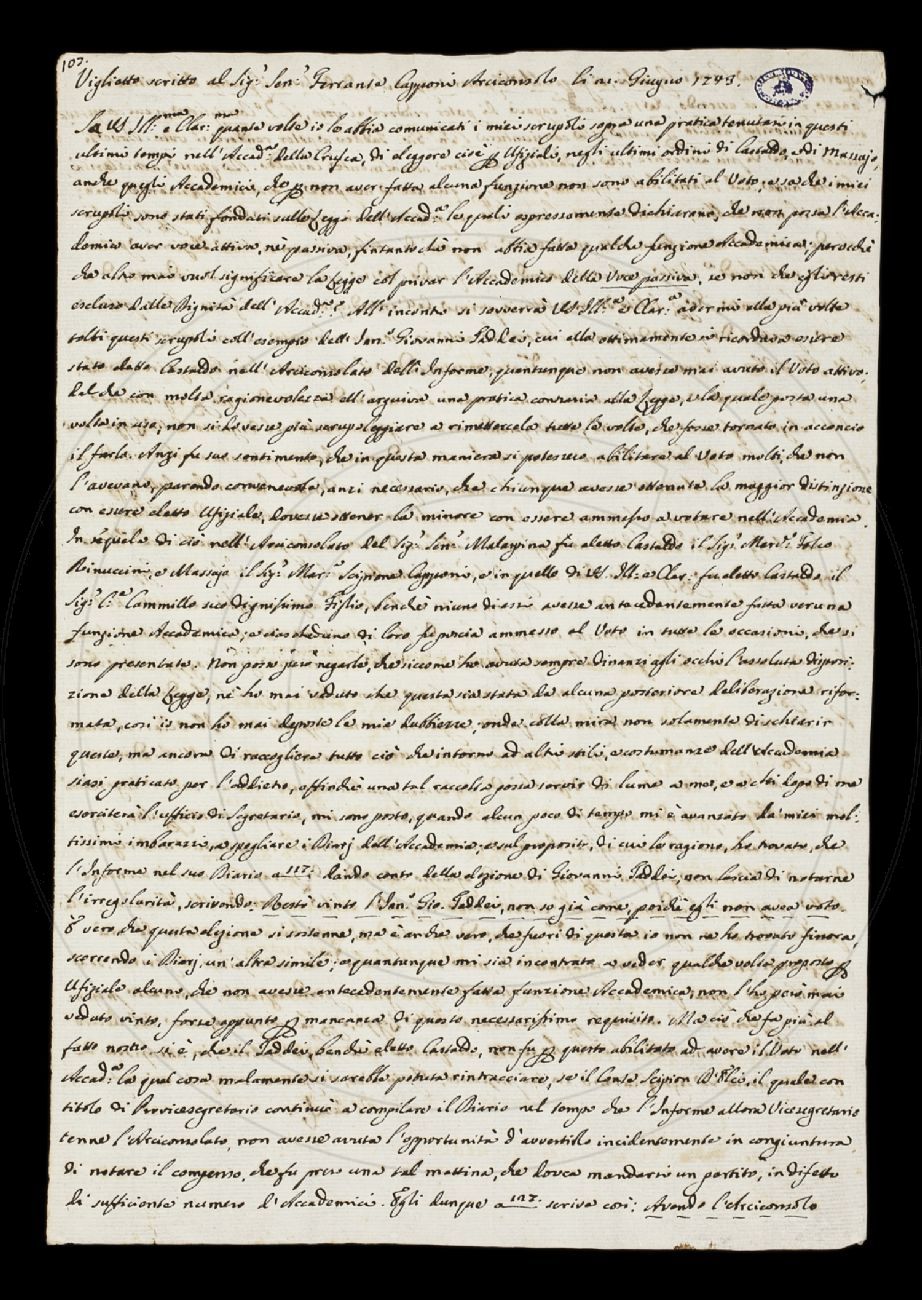 107.
Viglietto scritto al Sig.r Sen.r Ferrante Capponi Arciconsolo li 21. Giugno 1743.
Sa VS Ill.ma e Clar.ma quante volte io le abbia comunicati i miei scrupoli sopra una pratica tenutasi in questi
ultimi tempi nell'Accad.a della Crusca, di eleggere cioè per Ufiziali, negli ultimi ordini di Castaldo, e di Massajo,
anche quegli Accademici, che per non aver fatta alcuna funzione non sono abilitati al Voto; e sa che i miei
scrupoli sono stati fondati sulle Leggi dell'Accad.a le quali espressamente dichiarano, che non possa l'Acca-
demico aver voce attiva, nè passiva, fintantochè non abbia fatta qualche funzione Accademica: perocchè
che altro mai vuol significare la Legge col privar l'Accademico della Voce passiva, se non che egli resti
escluso dalle Dignità dell'Accad.a? All'incontro si sovverrà VS Ill.ma e Clar.ma avermi ella più volte
tolti questi scrupoli coll'esempio dell'Sen.r Giovanni Taddei, cui ella ottimamente si ricordava essere
stato eletto Castaldo nell'Arciconsolato dell'Informe, quantunque non avesse mai avuto il Voto attivo;
dal che con molta ragionevolezza ell'arguiva una pratica contraria alla Legge, e la quale posta una
volta in uso, non si dovesse più scrupoleggiare a rimettercela tutte le volte, che fosse tornato in acconcio
il farlo. Anzi fu suo sentimento, che in questa maniera si potessero abilitare al Voto molti, che non
l'avevano, parendo convenevole, anzi necessario, che chiunque avesse ottenuta la maggior distinzione
con essere eletto Ufiziale, dovesse ottener la minore con essere ammesso a votare nell'Accademia.
In sequela di ciò nell'Arciconsolato del Sig.r Sen.r Malaspina fu eletto Castaldo il Sig.r Mar.e Folco
Rinuccini, e Massajo il Sig.r Mar.e Scipione Capponi, e in quello di VS Ill.ma e Clar. fu eletto Castaldo il
Sig.r C.e Cammillo suo degnissimo Figlio, benchè niuno di essi avesse antecedentemente fatta veruna
funzione Accademica; e ciascheduno di loro fu poscia ammesso al Voto in tutte le occasioni, che si
sono presentate. Non posso però negarle, che siccome ho avuta sempre dinanzi agli occhi l'assoluta dispo-
zione della Legge, nè ho mai veduto che questa sia stata da alcuna posteriore deliberazione rifor-
mata, così io non ho mai deposte le mie dubbiezze; onde colla mira non solamente di schiarir
queste, ma ancora di raccogliere tutto ciò che intorno ad altri stili, e costumanze dell'Accademia
siasi praticato per l'addietro, affinchè una tal raccolta possa servir di lume a me, e a chi dopo di me
eserciterà l'uffizio di Segretario, mi sono posto, quando alcun poco di tempo mi è avanzato da' miei mol-
tissimi imbarazzi, a spogliare i Diarj dell'Accademia; e sul proposito, di cui le ragiono, ho trovato, che
l'Informe nel suo Diario a 117. dando conto della elezione di Giovanni Taddei, non lascia di notarne
l'irregolarità, scrivendo: Restò vinto l'Sen.r Gio. Taddei, non so già come, poichè egli non avea voto.
È vero che questa elezione si sostenne, ma è anche vero, che fuori di questa io non ne ho trovate finora,
scorrendo i Diarj, un'altra simile; e quantunque mi sia incontrato a veder qualche volta proposto per
Ufiziale alcuno, che non avesse antecedentemente fatta funzione Accademica, non l'ho però mai
veduto vinto, forse appunto per mancanza di questo necessarissimo requisito. Ma ciò che fa più al
fatto nostro si è, che il Taddei, benchè eletto Castaldo, non fu per questo abilitato ad avere il Voto nell'
Accad.a la qual cosa malamente si sarebbe potuta rintracciare, se il Conte Scipion D'Elci, il quale con
titolo di Provicesegretario continuò a compilare il Diario nel tempo che l'Informe allora Vicesegretario
tenne l'Arciconsolato, non avesse avuta l'opportunità d'avvertirlo incidentemente in congiuntura
di notare il compenso, che fu preso una tal mattina, che dovea mandarsi un partito, in difetto
di sufficiente numero d'Accademici. Egli dunque a 127. scrive così: Avendo l'Arciconsolo